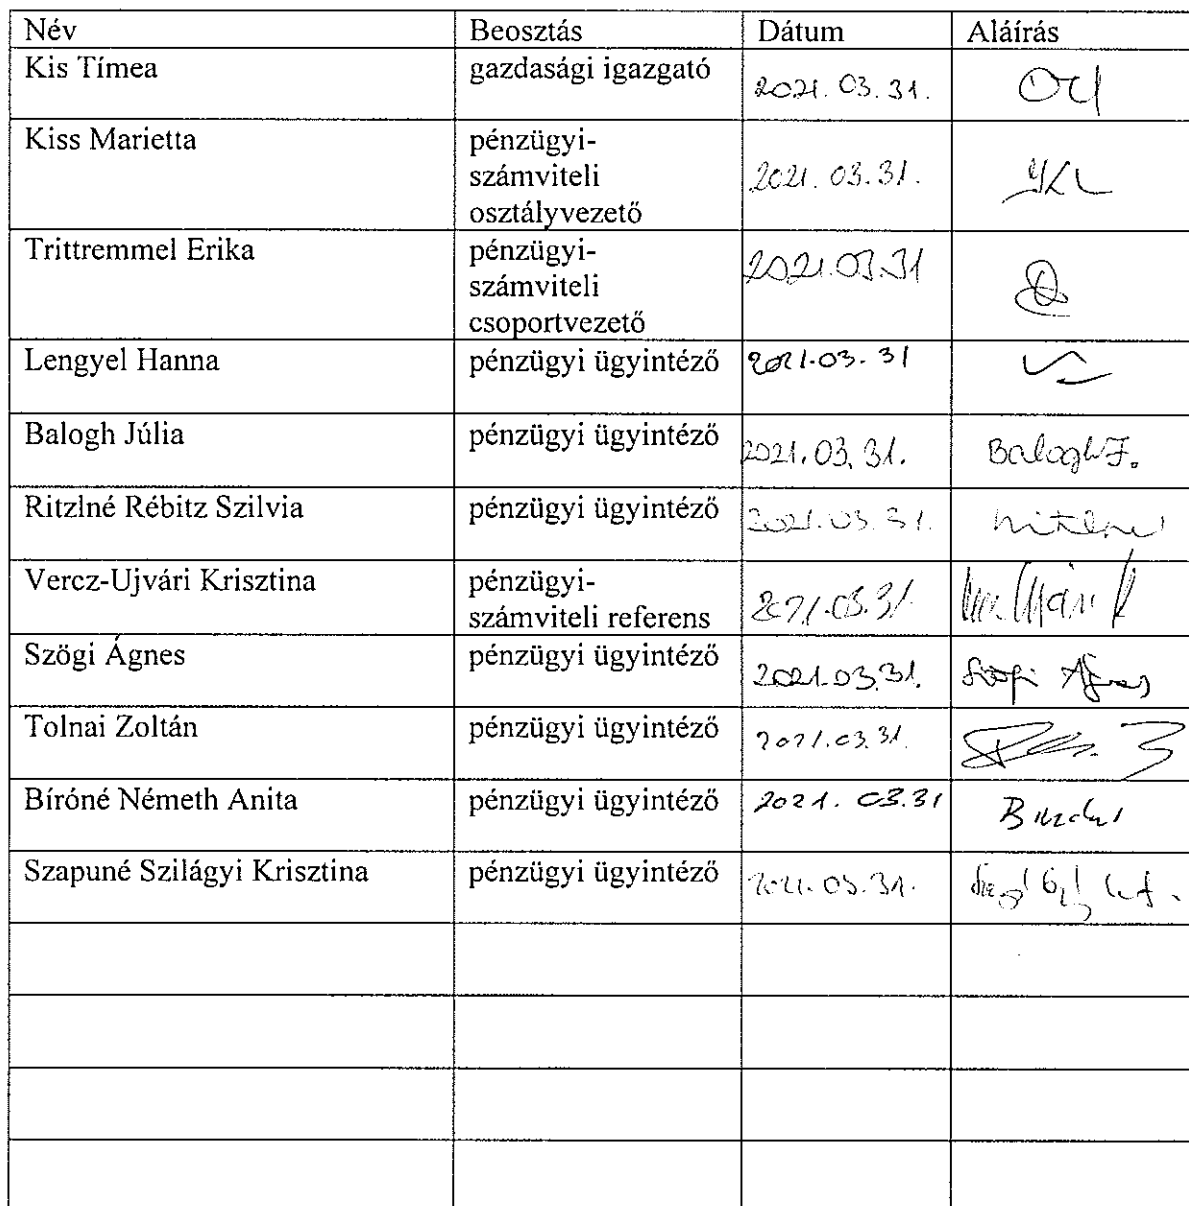 Név Beosztás Dátum Aláírás
Kis Tímea gazdasági igazgató 2021. 03. 31.
Kiss Marietta pénzügyi-
számviteli 2021. 03. 31.
osztályvezető
Trittremmel Erika pénzügyi- 2021.03.31
számviteli
csoportvezető
Lengyel Hanna pénzügyi ügyintéző 2021.03.31
Balogh Júlia pénzügyi ügyintéző 2021.03.31. Balogh J.
Ritzlné Rébitz Szilvia pénzügyi ügyintéző 2021.03.31.
Vercz-Ujvári Krisztina pénzügyi-
számviteli referens 2021.03.31.
Szögi Ágnes pénzügyi ügyintéző 2021.03.31. Szögi Ágnes
Tolnai Zoltán pénzügyi ügyintéző 2021.03.31.
Bíróné Németh Anita pénzügyi ügyintéző 2021. 03.31
Szapuné Szilágyi Krisztina pénzügyi ügyintéző 2021.03.31.